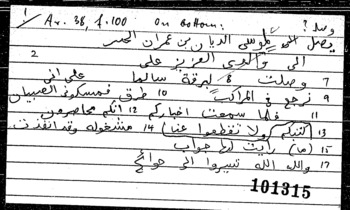 1/ Ar. 38, f.100 on bottom: وصل؟
يصل الى موسى الديان بن عمران الحبر
2 الى والدى العزيز على
7 وصلت 8 لبرقة سالما على انى
9 نرجع فى المراكب 10 طرق فمسكونى الصبيان
11 فلما سمعت اخباركم 12 انكم محاصرين
13 كتبكم ولا تقطعوا عنا 14 مشغوله وقد انفذت
15 (ما) رايت لها جواب
17 والله الله تسيروا الى حوائج
101315